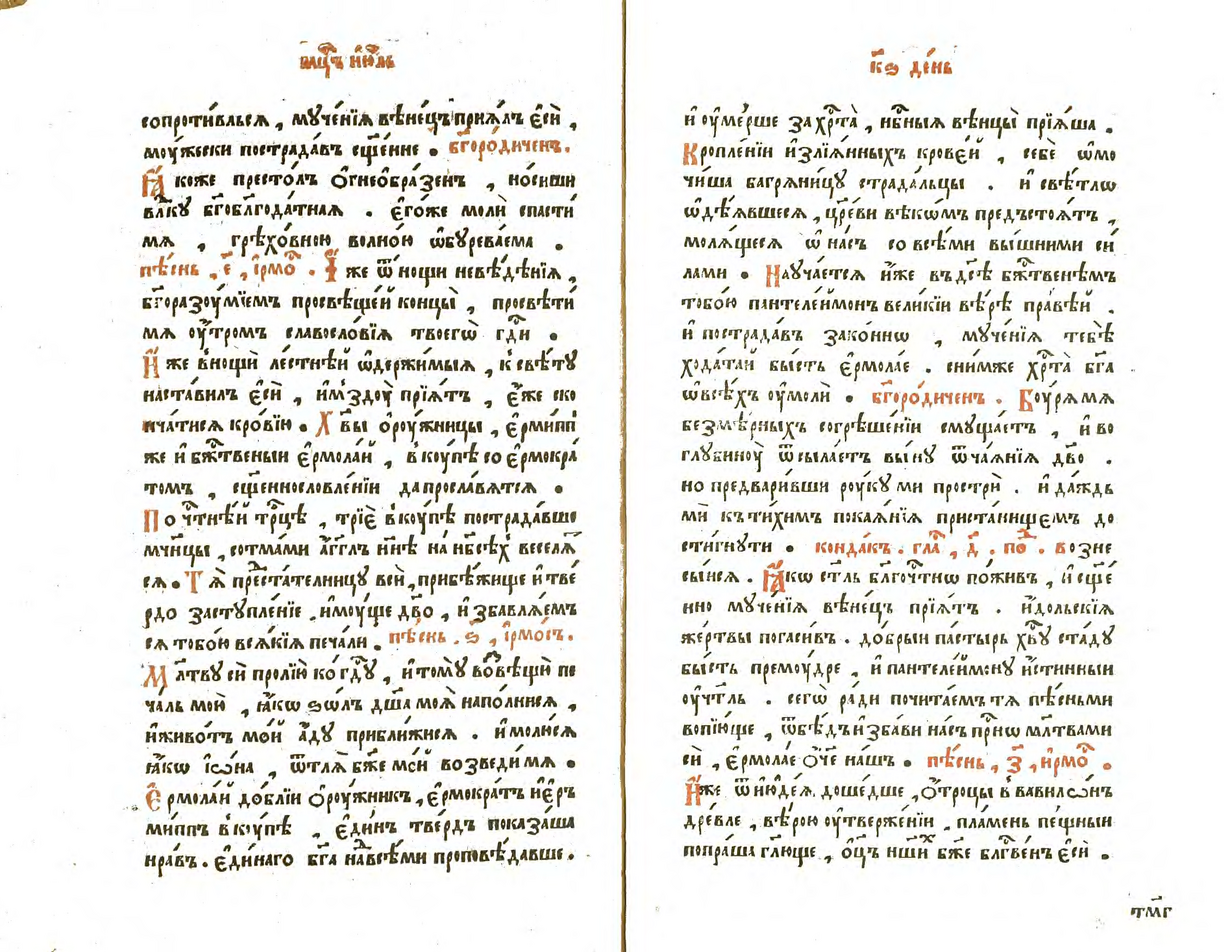 мц҇ъ ию҇ль
сопроти́влься , муче́нїѧ вѣне́цъ прїѧ́лъ є҆сѝ ,
моу́жески пострада́въ сщ҃е́нне . бг҃оро́диченъ .
Ꙗ҆́коже престо́лъ ѻ҆гнеѻбра́зенъ , но́сиши
влⷣку бг҃облг҃ода́тнаѧ . є҆го́же молѝ спастѝ
мѧ̀ , грѣхо́вною волно́ю ѡ҆буреваема .
пѣ́снь , е҃ , і҆рмо́ . И҆́же ѿ нощи невѣ́дѣнїѧ ,
бг҃оразоу́мїемъ просвѣще́й концы̀ , просвѣтѝ
мѧ̀ оу҆́тромъ славосло́вїѧ твоегѡ̀ гдⷭ҇и .
И҆́же в̾нощѝ лестнѣ́й ѡ҆держи́мыѧ , к̾ свѣ́ту
наста́вилъ є҆сѝ , и҆м̾здоу̀ прїѧ́тъ , є҆́же ско
нча́тисѧ кро́вїю . Х҃вы ѻ҆роу́жницы , є҆рми́пп
же и҆ бжⷭ҇твеныи є҆рмола́й , в̾коу́пѣ со є҆рмокра́
томъ , сщ҃еннословле́нїи да просла́вѧтсѧ .
По чⷭ҇тнѣ́й трⷪ҇цѣ , трїѐ в̾коу́пѣ пострада́вше
мч҃нцы , со тма́ми а҆́гг҃лъ нн҃ѣ на нб҃сѣ́хъ веселѧ́т
сѧ . Тѧ̀ предста́телницу всѝ , прибѣ́жище и҆ тве́
рдо заступле́нїе и҆мꙋ́ще дв҃о , и҆збавлѧ́емъ
сѧ тобо́ю всѧ́кїѧ печа́ли . пѣ́снь . ѕ҃ , і҆рмо́съ .
Мл҃тву сѝ пролїю̀ ко гдⷭ҇у , и҆ тому̀ во́звѣщꙋ̀ пе
ча́ль мою̀ , ꙗ҆́кѡ ѕѡ́лъ дш҃а моѧ̀ напо́лнисѧ ,
и҆ живо́тъ мо́й а҆́ду прибли́жисѧ . и҆ молю́сѧ
ꙗ҆́кѡ і҆ѡ́на , ѿ тлѧ̀ бж҃е мо́й возведи́ мѧ .
Є҆рмола́й до́блїи ѻ҆роу́жникъ , є҆рмокра́тъ и҆ є҆́р
ми́ппъ в̾коу́пѣ , є҆ди́нъ тве́рдъ показа́ша
нра́въ . є҆ди́наго бг҃а на́д̾ всѣ́ми проповѣ́давше .
к҃ѕ де́нь
и҆ оу҆ме́рше за хрⷭ҇та̀ , нб҃ныѧ вѣнцы̀ прїѧ́ша .
Кропле́нїи и҆злїѧ́нныхъ крове́й , себѐ ѡ҆мо
чи́ша багрѧни́цу страда́льцы . и҆ свѣ́тлѡ
ѡ҆дѣ́ѧвшесѧ , цр҃е́ви вѣкѡ́мъ предъстоѧ́тъ ,
молѧ́щесѧ ѡ҆ на́съ со всѣ́ми вы́шними си́
лами . Науча́етсѧ и҆́же въ дс҃ѣ бжⷭ҇твенѣмъ
тобо́ю пантелеи́монъ вели́кїи вѣ́рѣ пра́вѣй .
и҆ пострада́въ зако́ннѡ , муче́нїѧ тебѣ̀
хода́тай бы́сть є҆рмола́е . сни́мже хрⷭ҇та̀ бг҃а
ѡ҆ всѣ́хъ оу҆молѝ . бг҃оро́диченъ . Боу́рѧ мѧ̀
безмѣ́рныхъ согрѣше́нїи смуща́етъ , и҆ во
глубиноу̀ ѿсыла́етъ вы́ну ѿча́ѧнїѧ дв҃о .
но предвари́вши роу́ку ми прострѝ . и҆ да́ждь
мѝ къ ти́химъ покаѧ́нїѧ приста́нищемъ до
сти́гнути . конда́къ . гла́ , д҃ . по́ . возне
сы́йсѧ . Ꙗ҆́кѡ ст҃ль бл҃гочⷭ҇тнѡ пожи́въ , и҆ сщ҃е
нно муче́нїѧ вѣне́цъ прїѧ́тъ . и҆́дольскїѧ
же́ртвы погаси́въ . до́брыи па́стырь хв҃у ста́ду
бы́сть премоу́дре , и҆ пантелеи́мону и҆́стинныи
оу҆чт҃ль . сегѡ̀ ра́ди почита́емъ тѧ пѣ́сньми
вопїю́ще , ѿ бѣ́дъ и҆зба́ви на́съ при́снѡ мл҃твами
сѝ , є҆рмола́е ѻ҆́ч҃е на́шъ . пѣ́снь , з҃ , и҆рмо́ .
И҆́же ѿ и҆юде́ѧ доше́дше , ѻ҆́троцы в̾ вавилѡ́нъ
дре́вле , вѣ́рою оу҆тверже́нїи , пла́мень пе́щныи
попра́ша гл҃юще , ѻ҆ц҃ъ нш҃ихъ бж҃е бл҃гве́нъ є҆сѝ .
тм҃г